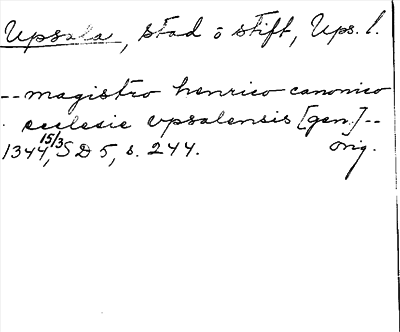 Upsala, stad o stift, Ups. l.
-- magistro henrico canonico
ecclesie vpsalensis [gen.] --
1344 15/3, SD 5, s. 244. orig.